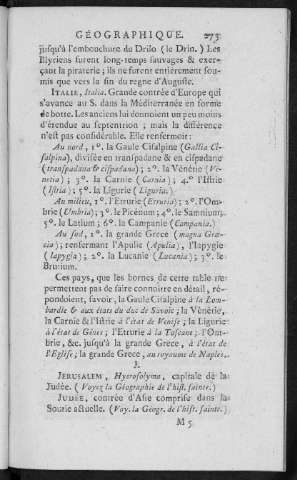 GÉOGRAPHIQUE. 273
jusqu'à l'embouchure du Drilo (le Drin.) Les
Illyriens furent long-temps sauvages & exer-
çant la piraterie; ils ne furent entiérement sou-
mis que vers la fin du regne d'Auguste.
ITALIE, Italia. Grande contrée d'Europe qui
s'avance au S. dans la Méditerranée en forme
de botte. Les anciens lui donnoient un peu moins
d'étendue au septentrion; mais la différence
n'est pas considérable. Elle renfermoit:
Au nord, 1°. la Gaule Cisalpine (Gallia Ci-
salpina), divisée en transpadane & en cispadane
(transpadana & cispadana); 2°. la Vénétie (Ve-
netia); 3°. la Carnie (Carnia); 4°. l'Istrie
(Istria); 5°. la Ligurie (Liguria.)
Au milieu, 1°. l'Etrurie (Etruria); 2°. l'Om-
brie (Umbria); 3°. le Picénum; 4°. le Samnium;
5°. le Latium; 6°. la Campanie (Campania.)
Au sud, 1°. la grande Grece (magna Græ-
cia); renfermant l'Apulie (Apulia), l'Iapygie
(Iapygia); 2°. la Lucanie (Lucania); 3°. le
Brutium.
Ces pays, que les bornes de cette table ne
permettent pas de faire connoître en détail, ré-
pondoient, savoir, la Gaule Cisalpine à la Lom-
bardie & aux états du duc de Savoie; la Vénétie,
la Carnie & l'Istrie à l'état de Venise; la Ligurie
à l'état de Gênes; l'Etrurie à la Toscane; l'Om-
brie, &c. jusqu'à la grande Grece, à l'état de
l'Eglise; la grande Grece, au royaume de Naples.
J.
JERUSALEM, Hyerosolyma, capitale de la
Judée. (Voyez la Géographie de l'hist. sainte.)
JUDÉE, contrée d'Asie comprise dans la
Sourie actuelle. (Voy. la Géogr. de l'hist. sainte.)
M 5